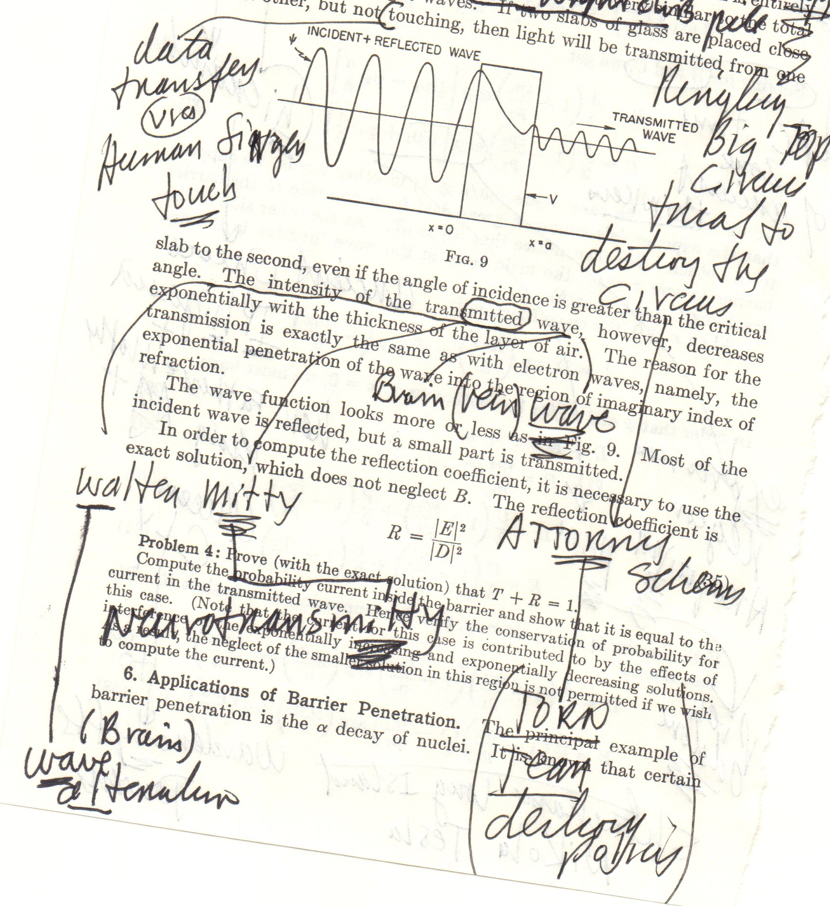 other, but not touching, then light will be transmitted from one
waves. If two slabs of glass are placed close
data
transfer
via
Human Finger
touch
ψ
INCIDENT + REFLECTED WAVE
TRANSMITTED
WAVE
V
x=0
x=a
FIG. 9
Big Top
Circus
trial to
destroy the
Circus
slab to the second, even if the angle of incidence is greater than the critical
angle. The intensity of the transmitted wave, however, decreases
exponentially with the thickness of the layer of air. The reason for the
transmission is exactly the same as with electron waves, namely, the
exponential penetration of the wave into the region of imaginary index of
refraction.
Brain (vein) wave
The wave function looks more or less as in Fig. 9. Most of the
incident wave is reflected, but a small part is transmitted.
In order to compute the reflection coefficient, it is necessary to use the
exact solution, which does not neglect B. The reflection coefficient is
Walten Mitty
R = |E|² / |D|²
(35)
Attorney
Schems
Problem 4: Prove (with the exact solution) that T + R = 1.
Compute the probability current inside the barrier and show that it is equal to the
current in the transmitted wave. Hence verify the conservation of probability for
this case. (Note that the current for this case is contributed to by the effects of
interference of the exponentially increasing and exponentially decreasing solutions.
As a result, the neglect of the smaller solution in this region is not permitted if we wish
to compute the current.)
Neurotransmitty
6. Applications of Barrier Penetration. The principal example of
barrier penetration is the α decay of nuclei. It is known that certain
(Brain)
wave
alternation
TORN
Tear
destroy